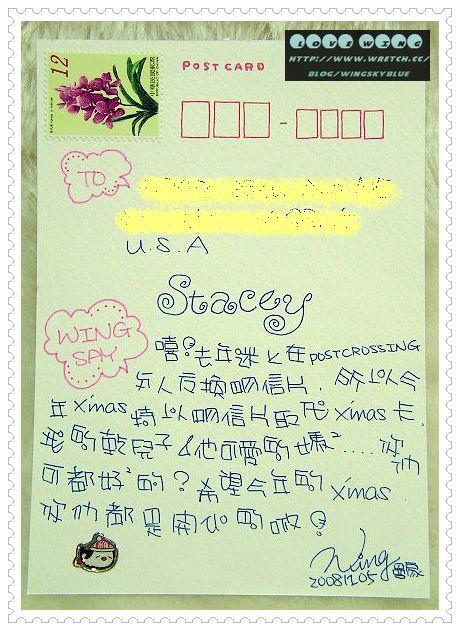 LOVE WING
HTTP://WWW.WRETCH.CC/
BLOG/WINGSKYBLUE
12
中華民國郵票
POSTCARD
TO
U.S.A
Stacey
WING
SAY
嘻!去年迷上在POSTCROSSING
與人交換明信片,所以今
年X'mas特以明信片取代X'mas卡,
我的乾兒子&他可愛的媽媽....你們
可都好好的?希望今年的X'mas
你們都是開心的啦!
Wing
20081205